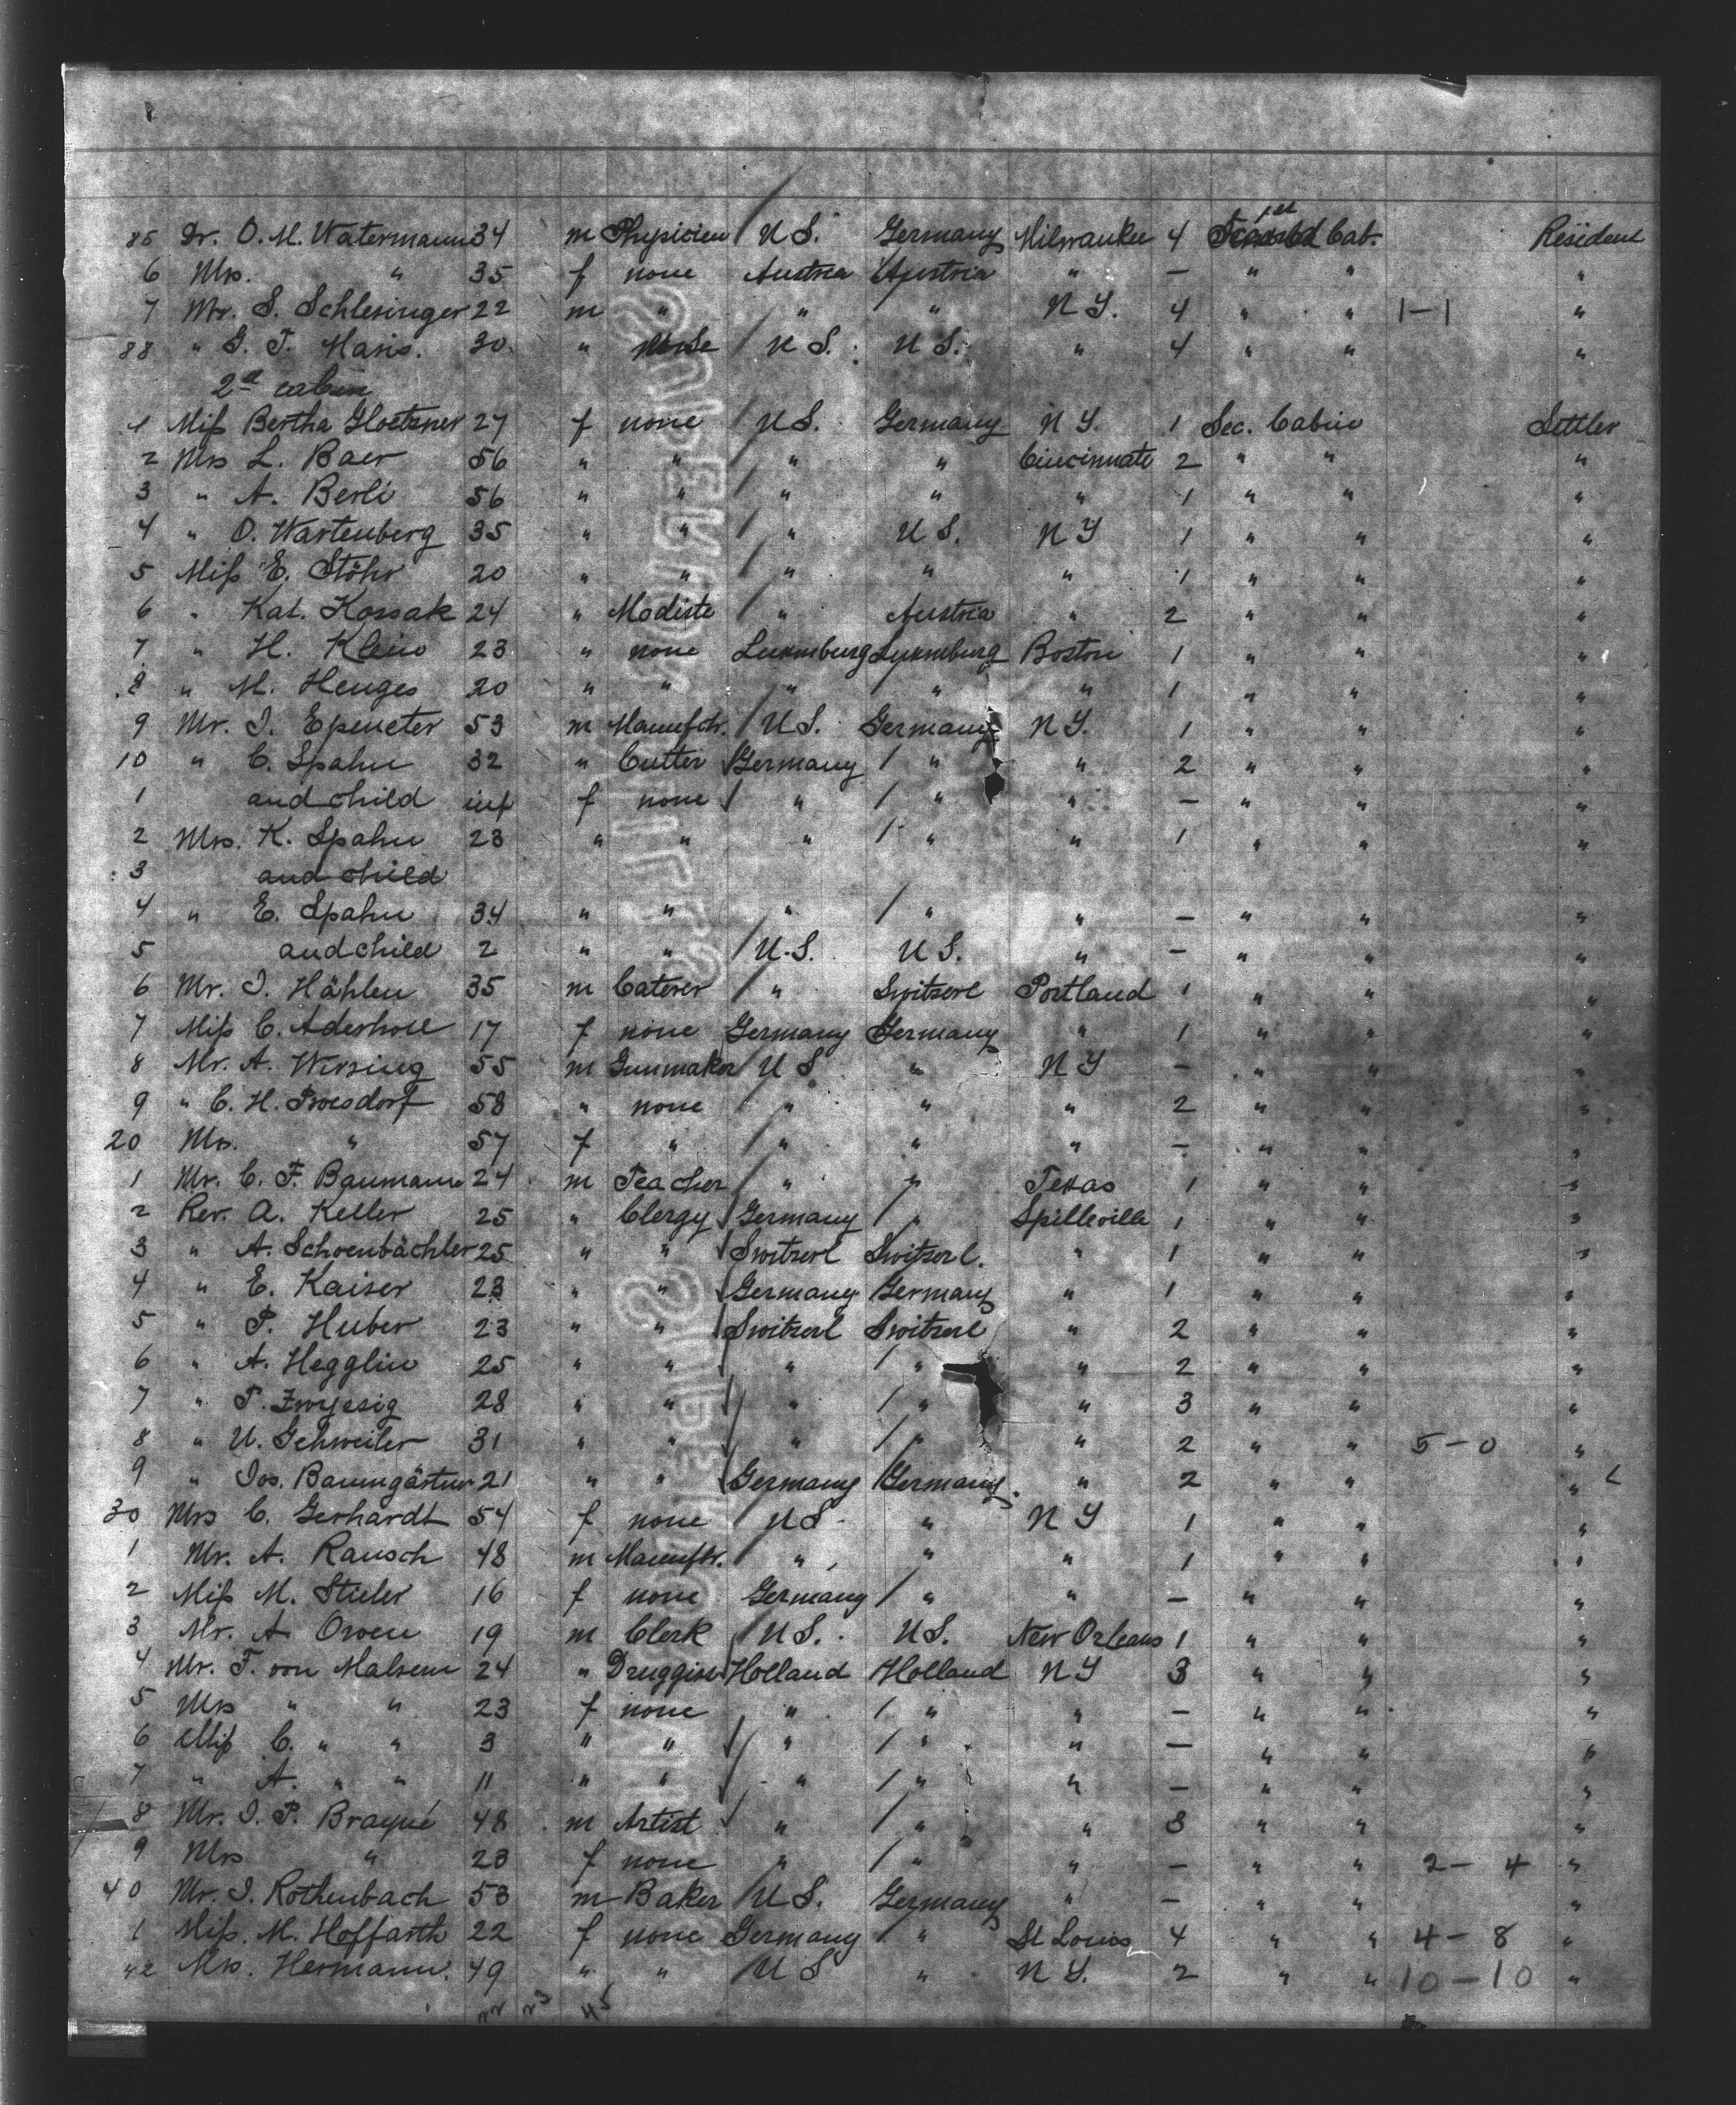 85 Dr. O. M. Watermann 34 m Physicien U S. Germany Milwaukee 4 1st Cab. Resident
6 Mrs. " 35 f none Austria Austria " — " " "
7 Mr. S. Schlesinger 22 m " " " N Y. 4 " " 1-1 "
88 " G. T. Haris. 30 " U S. U S. " 4 " " "
2d cabin
1 Miss Bertha Gloetzner 27 f none U S. Germany N Y. 1 Sec. Cabin Settler
2 Mrs L. Baer 56 " " " " Cincinnati 2 " " "
3 " A. Berli 56 " " " " " 1 " " "
4 " O. Wartenberg 35 " " " U S. N Y 1 " " "
5 Miss E. Stöhr 20 " " " " " 1 " " "
6 " Kat. Kossak 24 " Modiste " Austria " 2 " " "
7 " H. Klein 23 " none Luxmburg Luxmburg Boston 1 " " "
8 " M. Henges 20 " " " " " 1 " " "
9 Mr. I. Epeneter 53 m Manufctr. U S. Germany N Y. 1 " " "
10 " C. Spahn 32 " Cutter Germany " " 2 " " "
1 and child inf f none " " " — " " "
2 Mrs. K. Spahn 23 " " " " " 1 " " "
3 and child
4 " E. Spahn 34 " " " " " — " " "
5 and child 2 " " U.S. U S. " — " " "
6 Mr. I. Hählen 35 m Caterer " Switzerl Portland 1 " " "
7 Miss C. Aderhold 17 f none Germany Germany " 1 " " "
8 Mr. A. Wirsing 55 m Gunmaker U S " N Y — " " "
9 " C. H. Proesdorf 58 " none " " " 2 " " "
20 Mrs. " 57 f " " " " — " " "
1 Mr. C. F. Baumann 24 m Teacher " " Texas 1 " " "
2 Rev. A. Keller 25 " Clergy Germany " Spilleville 1 " " "
3 " A. Schoenbächler 25 " " Switzerl Switzerl. " 1 " " "
4 " E. Kaiser 23 " " Germany Germany " 1 " " "
5 " P. Huber 23 " " Switzerl Switzerl " 2 " " "
6 " A. Hegglin 25 " " " " " 2 " " "
7 " P. Zwyesig 28 " " " " " 3 " " "
8 " U. Gehweiler 31 " " " " " 2 " " 5-0 "
9 " Jos. Baumgärtner 21 " " Germany Germany. " 2 " " "
30 Mrs C. Gerhardt 54 f none U S " N Y 1 " " "
1 Mr. A. Rausch 48 m Manuftr. " " " 1 " " "
2 Miss M. Stieler 16 f none Germany " " — " " "
3 Mr. A. Owen 19 m Clerk U S. U S. New Orleans 1 " " "
4 Mr. F. von Malsem 24 " Druggist Holland Holland N Y 3 " " "
5 Mrs " " 23 f none " " " — " " "
6 Miss C. " " 3 " " " " " — " " "
7 " A. " " 11 " " " " " — " " "
8 Mr. I. P. Braqué 48 m Artist " " " 3 " " "
9 Mrs " 23 f none " " " — " " 2-4 "
40 Mr. I. Rothenbach 53 m Baker U S. Germany " — " " "
1 Miss. M. Hoffarth 22 f none Germany " St Louis 4 " " 4-8 "
42 Mrs. Hermann. 49 " " U S " N Y. 2 " " 10-10 "
22 23 45